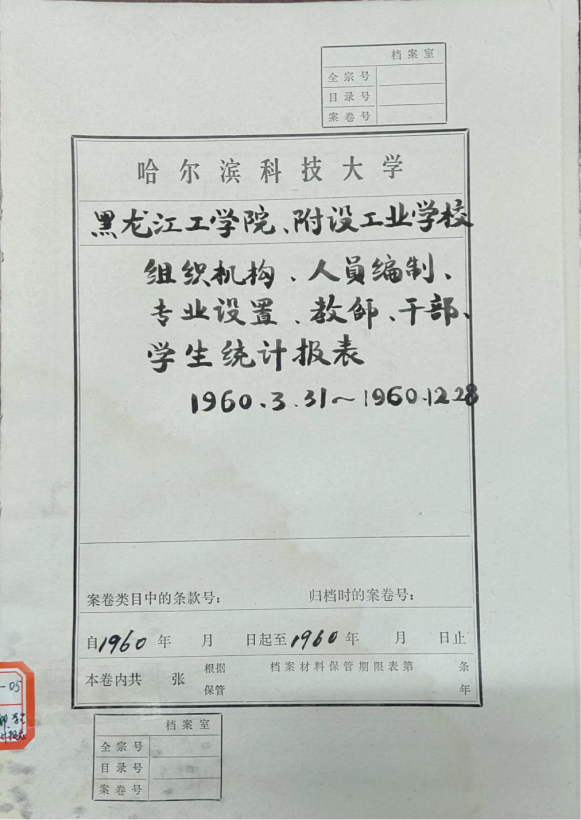 档案室
全宗号
目录号
案卷号
哈尔滨科技大学
黑龙江工学院、附设工业学校
组织机构、人员编制、
专业设置、教师、干部、
学生统计报表
1960.3.31～1960.12.28
案卷类目中的条款号： 归档时的案卷号：
自1960年 月 日起至1960年 月 日止
本卷内共 张 根据 档案材料保管期限表第 条
保管 年
-05
档案室
全宗号
目录号
案卷号